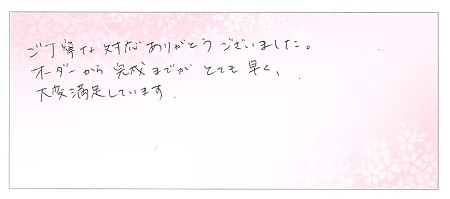 ご丁寧な対応ありがとうございました。
オーダーから完成までが とても早く、
大変満足しています.